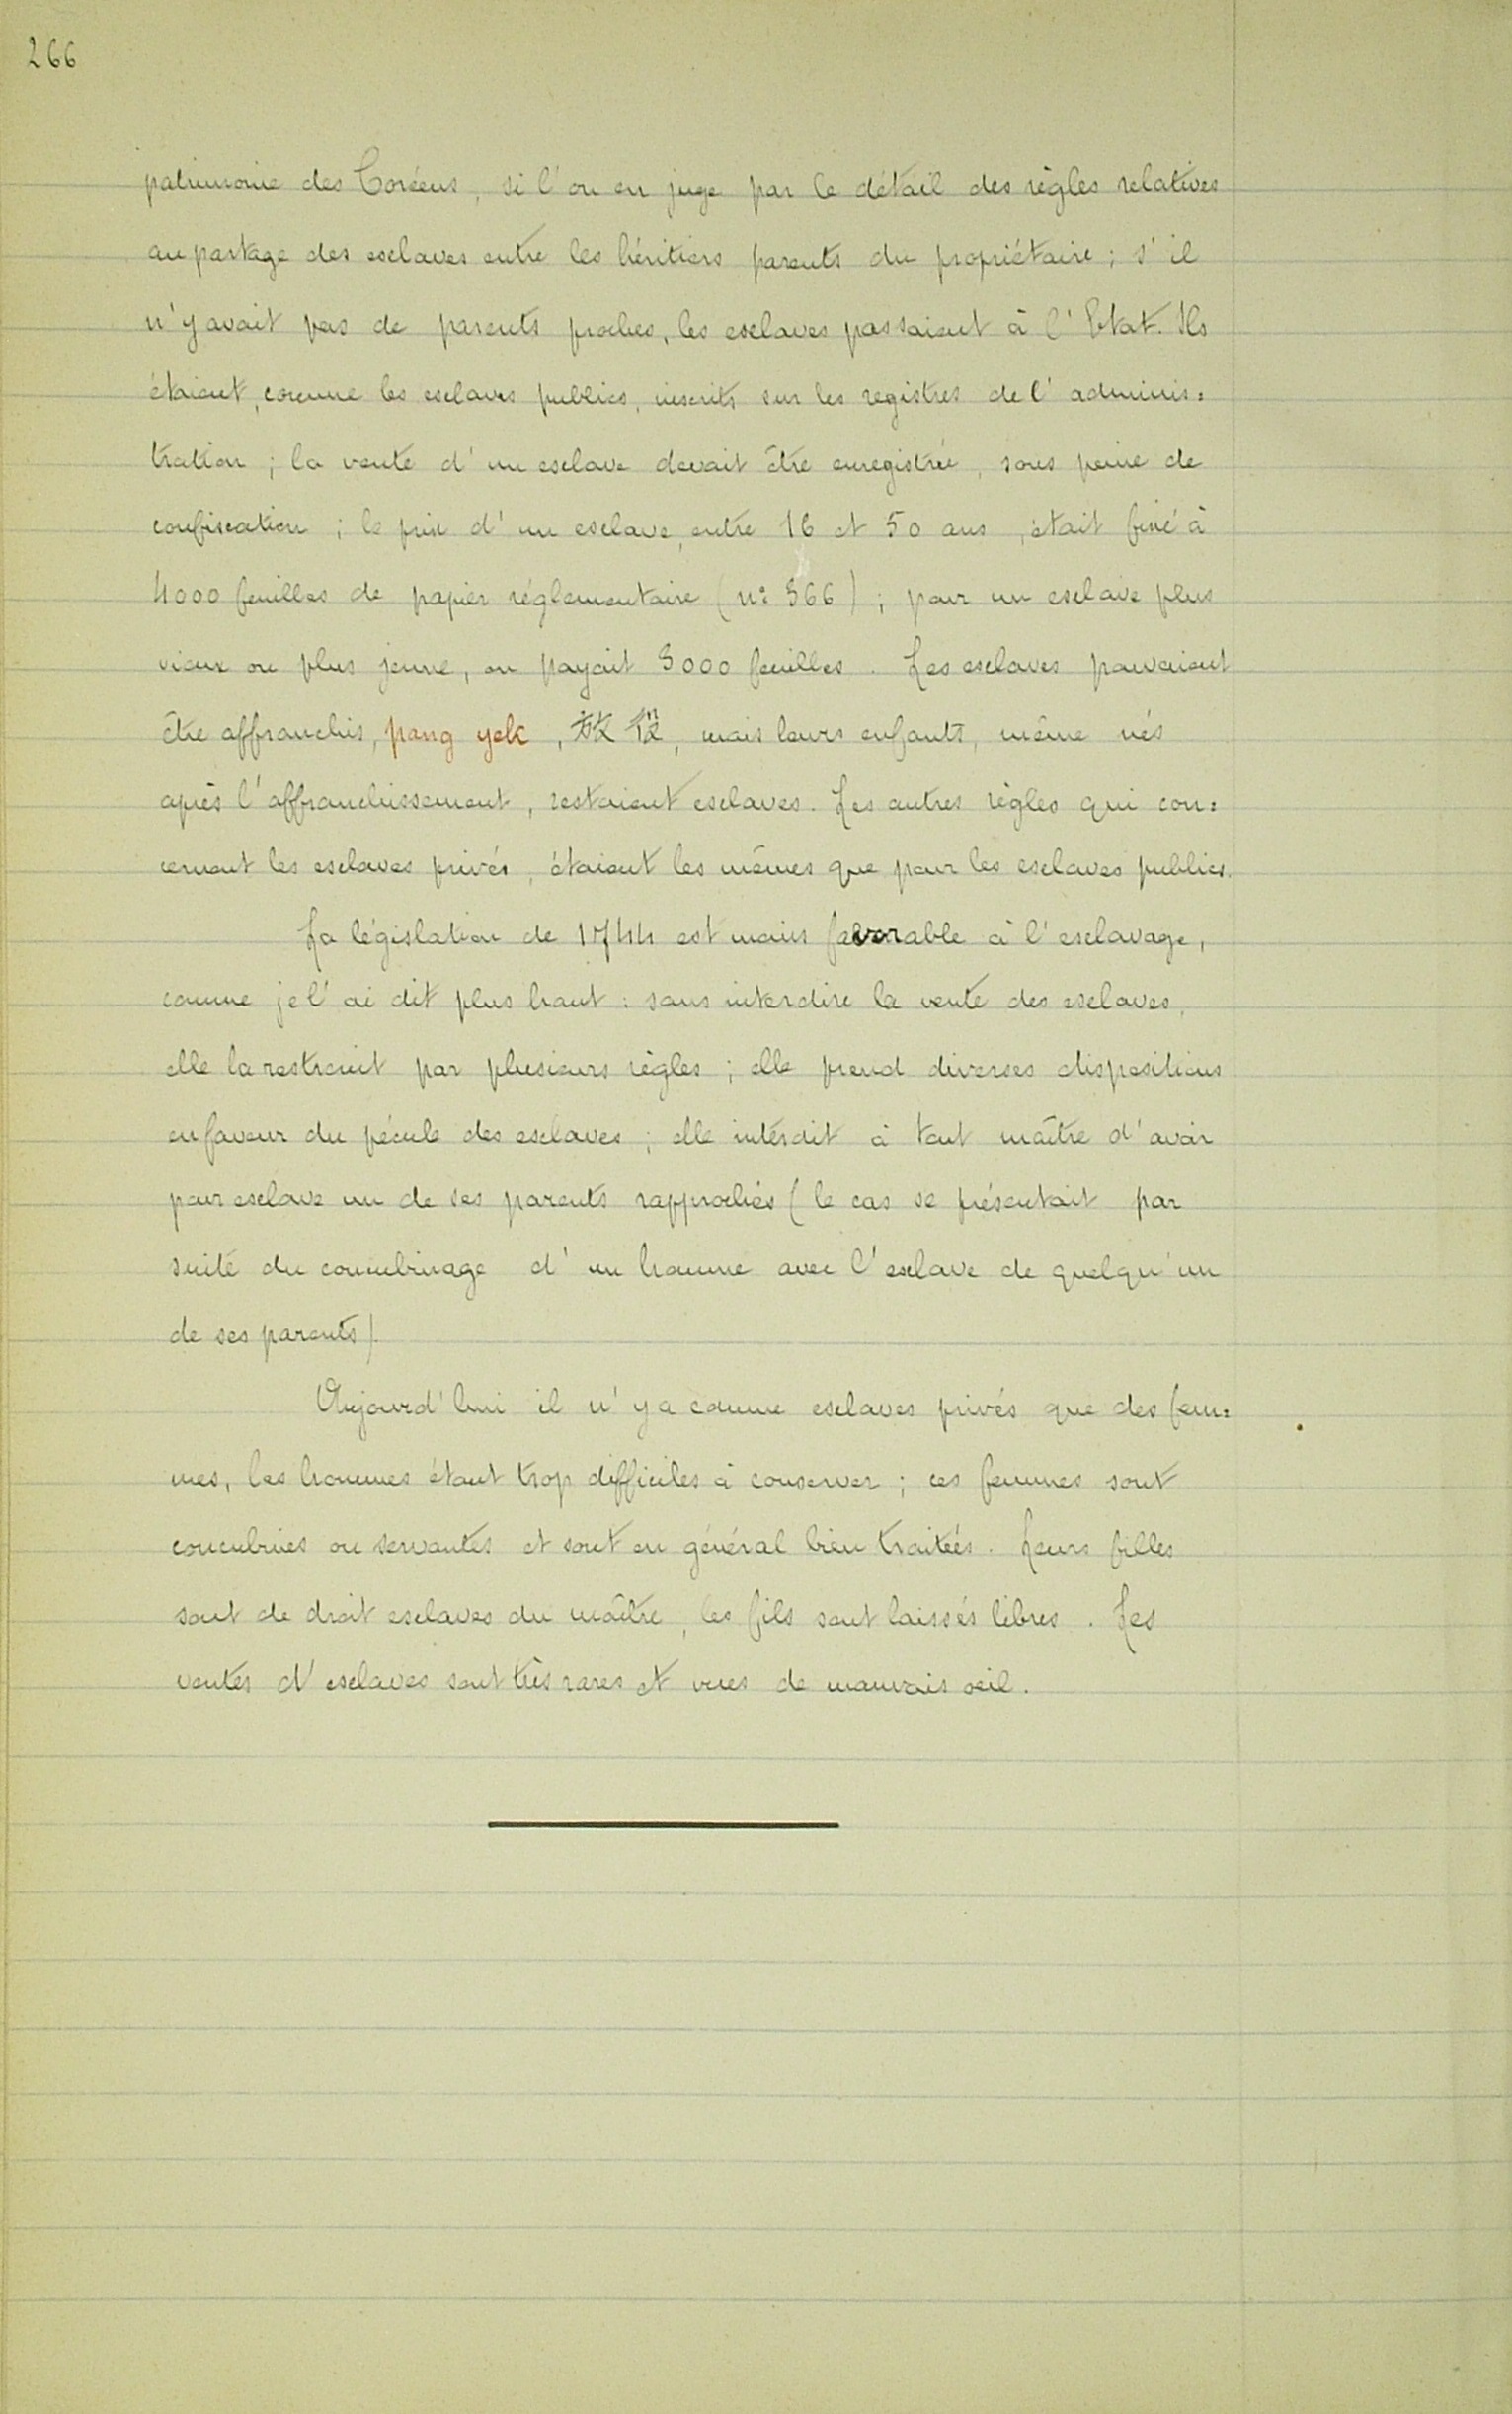 266
patrimoine des Coréens, si l'on en juge par le détail des règles relatives
au partage des esclaves entre les héritiers parents du propriétaire ; s'il
n'y avait pas de parents proches, les esclaves passaient à l'Etat. Ils
étaient, comme les esclaves publics, inscrits sur les registres de l'adminis=
tration ; la vente d'un esclave devait être enregistrée, sous peine de
confiscation ; le prix d'un esclave, entre 16 et 50 ans, était fixé à
4000 feuilles de papier réglementaire (nº 366) ; pour un esclave plus
vieux ou plus jeune, on payait 3000 feuilles. Les esclaves pouvaient
être affranchis, pang yek, 放役, mais leurs enfants, même nés
après l'affranchissement, restaient esclaves. Les autres règles qui con=
cernent les esclaves privés, étaient les mêmes que pour les esclaves publics.
La législation de 1744 est moins favorable à l'esclavage,
comme je l'ai dit plus haut : sans interdire la vente des esclaves,
elle la restreint par plusieurs règles ; elle prend diverses dispositions
en faveur du pécule des esclaves ; elle interdit à tout maître d'avoir
pour esclave un de ses parents rapprochés (le cas se présentait par
suite du concubinage d'un homme avec l'esclave de quelqu'un
de ses parents).
Aujourd'hui il n'y a comme esclaves privés que des fem=
mes, les hommes étant trop difficiles à conserver ; ces femmes sont
concubines ou servantes et sont en général bien traitées. Leurs filles
sont de droit esclaves du maître, les fils sont laissés libres. Les
ventes d'esclaves sont très rares et vues de mauvais oeil.